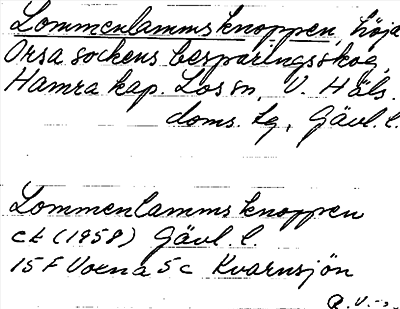 Lommenlammsknoppen, höja
Orsa sockens besparingsskog,
Hamra kap. Los sn, V. Häls.
doms. tg, Gävl. l.
Lommenlammsknoppen
ck (1958) Gävl. l.
15 F Voxna 5 c Kvarnsjön